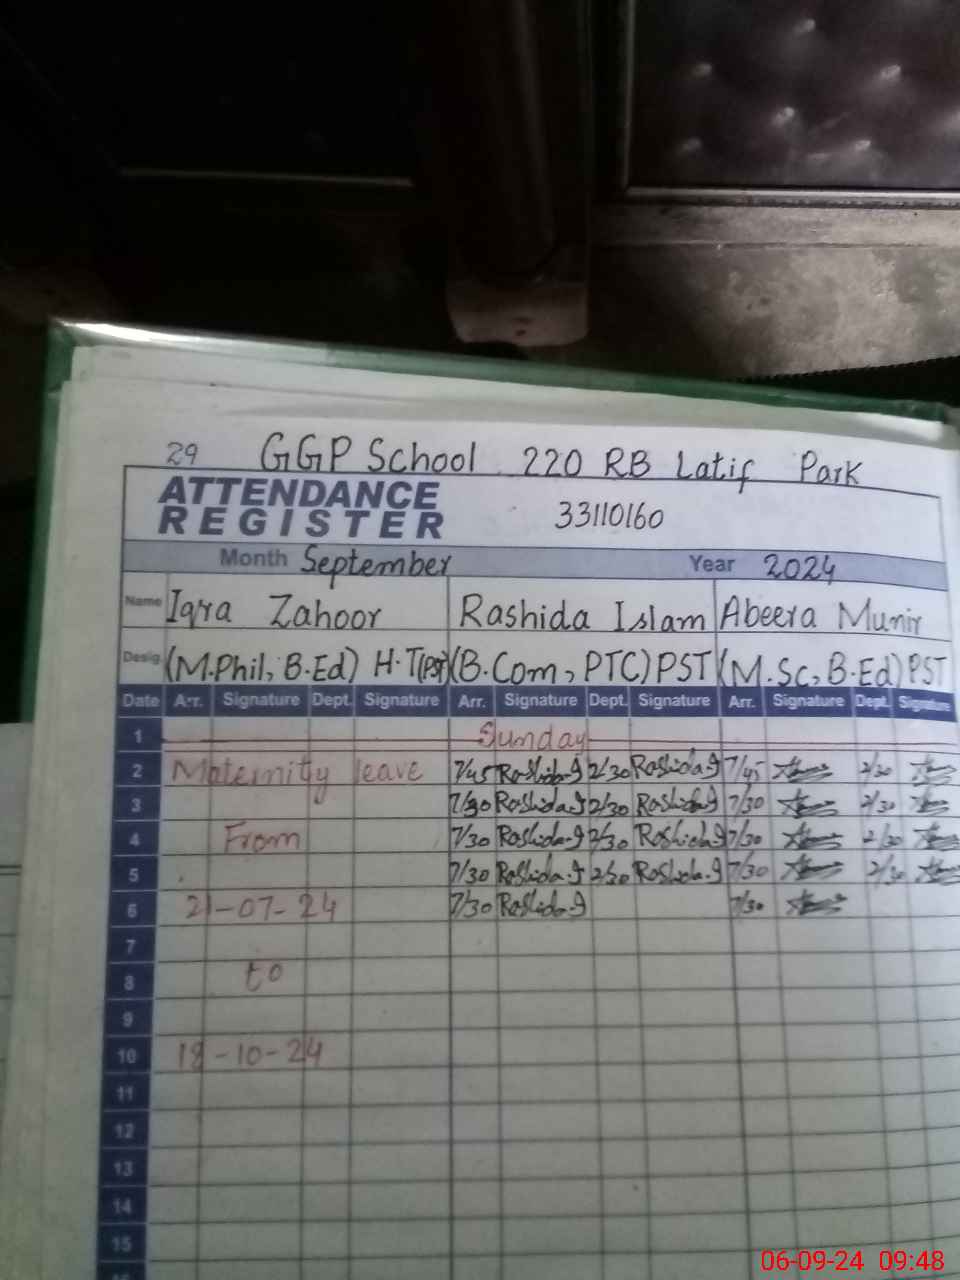 29 GGP School 220 RB Latif Park
ATTENDANCE
REGISTER
33110160
Month September Year 2024
Name Iqra Zahoor Rashida Islam Abeera Munir
Desig. (M.Phil, B.Ed) H.T(PST) (B.Com, PTC) PST (M.Sc, B.Ed) PST
Date Arr. Signature Dept. Signature Arr. Signature Dept. Signature Arr. Signature Dept. Signature
1 Sunday
2 Maternity leave 7/45 Rashida.I 2/30 Rashida.I 7/45 2/30
3 7/30 Rashida.I 2/30 Rashida.I 7/30 2/30
4 From 7/30 Rashida.I 2/30 Rashida.I 7/30 2/30
5 7/30 Rashida.I 2/30 Rashida.I 7/30 2/30
6 21-07-24 7/30 Rashida.I 7/30
7
8 to
9
10 18-10-24
11
12
13
14
15
06-09-24 09:48